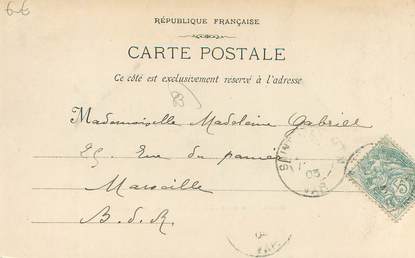 66
RÉPUBLIQUE FRANÇAISE
CARTE POSTALE
Ce côté est exclusivement réservé à l'adresse
Mademoiselle Madeleine Gabriel
25, Rue du panier
Marseille
B. d. R
03
VAR
5
VAR